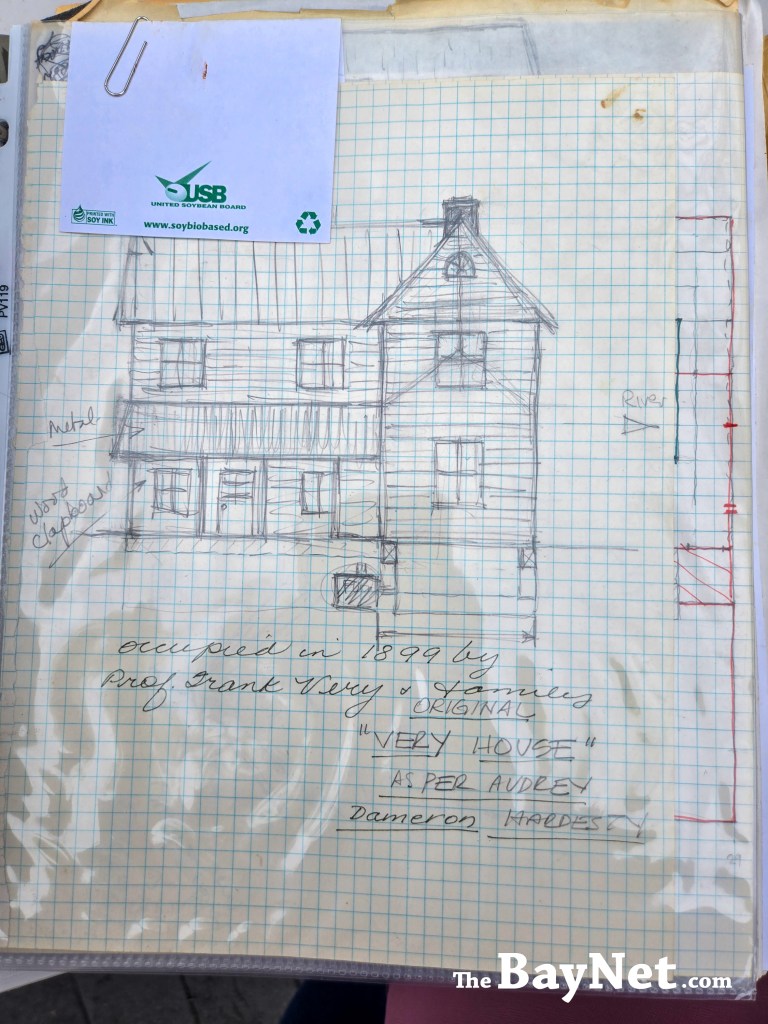 USB
UNITED SOYBEAN BOARD
PRINTED WITH
SOY INK
www.soybiobased.org
PV119
Metal
Wood
Clapboard
River
occupied in 1899 by
Prof. Frank Very & Family
ORIGINAL
"VERY HOUSE"
AS PER AUDREY
Dameron HARDESTY
The BayNet.com